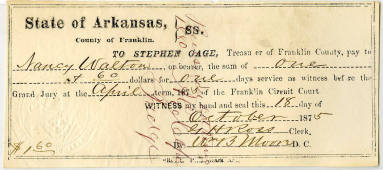 State of Arkansas, } ss.
County of Franklin.
TO STEPHEN GAGE, Treasurer of Franklin County, pay to
Nancy Walton or bearer, the sum of one
& 60 dollars for one days service as witness before the
Grand Jury at the April term, 1875 of the Franklin Circuit Court
WITNESS my hand and seal this 18 day of
October 1875
Ross Clerk,
$1.60 By W B Moore D. C.